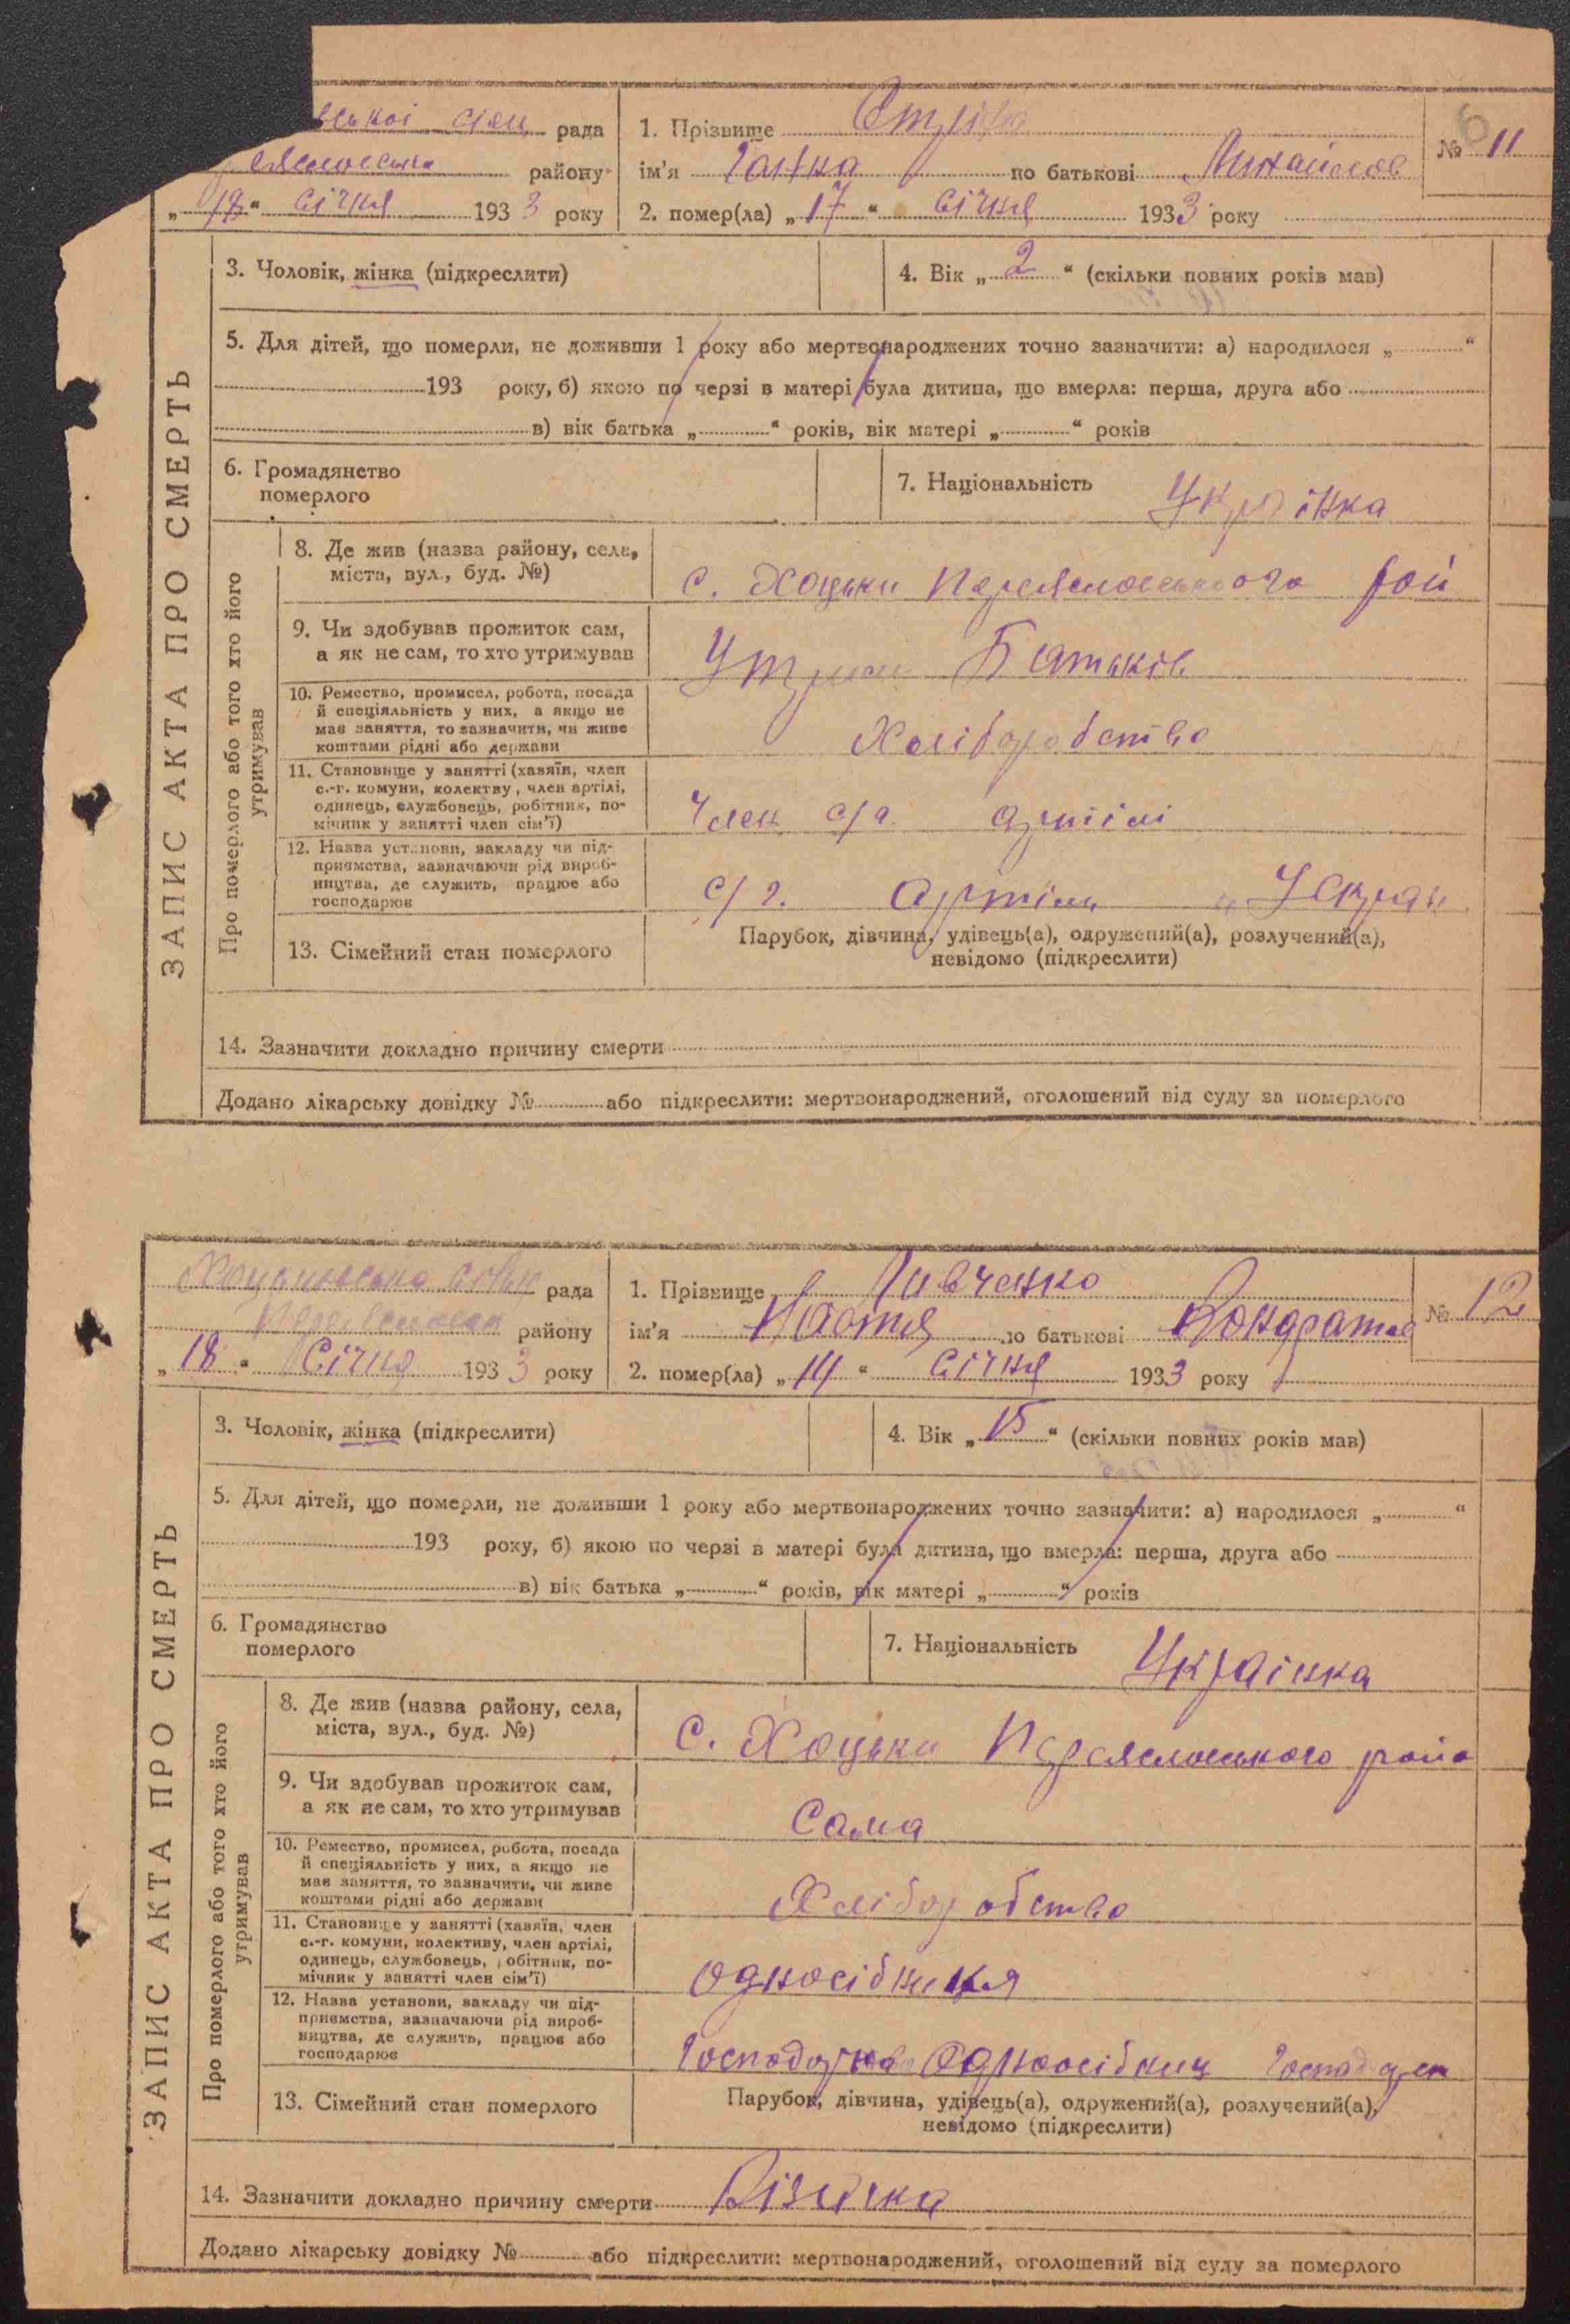 ської сіль рада
району
„ 18 “ Січня 1933 року
1. Прізвище
ім'я Ганна по батькові Михайлов
2. помер(ла) „ 17 “ Січня 1933 року
№ 11
6
ЗАПИС АКТА ПРО СМЕРТЬ
3. Чоловік, жінка (підкреслити)
4. Вік „ 2 “ (скільки повних років мав)
5. Для дітей, що померли, не доживши 1 року або мертвонароджених точно зазначити: а) народилося „ “
193 року, б) якою по черзі в матері була дитина, що вмерла: перша, друга або
в) вік батька „ “ років, вік матері „ “ років
6. Громадянство
померлого
7. Національність Українка
Про померлого або того хто його
утримував
8. Де жив (назва району, села,
міста, вул., буд. №)
с. Хоцьки Переяславського рой
9. Чи здобував прожиток сам,
а як не сам, то хто утримував
Утрим Батьків
10. Ремество, промисел, робота, посада
й спеціяльність у них, а якщо не
має заняття, то зазначити, чи живе
коштами рідні або держави
Хліборобство
11. Становище у занятті (хазяїн, член
с.-г. комуни, колективу, член артілі,
одинець, службовець, робітник, по-
мічник у занятті член сім'ї)
Член с/г. артілі
12. Назва установи, закладу чи під-
приємства, зазначаючи рід вироб-
ництва, де служить, працює або
господарює
С/г. Артіль
13. Сімейний стан померлого
Парубок, дівчина, удівець(а), одружений(а), розлучений(а),
невідомо (підкреслити)
14. Зазначити докладно причину смерти
Додано лікарську довідку № або підкреслити: мертвонароджений, оголошений від суду за померлого
Хоцьківська сільк рада
району
„ 18 “ Січня 1933 року
1. Прізвище Пивченко
ім'я Настя по батькові Кондратов
2. помер(ла) „ 14 “ Січня 1933 року
№ 12
ЗАПИС АКТА ПРО СМЕРТЬ
3. Чоловік, жінка (підкреслити)
4. Вік „ 15 “ (скільки повних років мав)
5. Для дітей, що померли, не доживши 1 року або мертвонароджених точно зазначити: а) народилося „ “
193 року, б) якою по черзі в матері була дитина, що вмерла: перша, друга або
в) вік батька „ “ років, вік матері „ “ років
6. Громадянство
померлого
7. Національність Українка
Про померлого або того хто його
утримував
8. Де жив (назва району, села,
міста, вул., буд. №)
С. Хоцьки Переяславського ройо
9. Чи здобував прожиток сам,
а як не сам, то хто утримував
Сама
10. Ремество, промисел, робота, посада
й спеціяльність у них, а якщо не
має заняття, то зазначити, чи живе
коштами рідні або держави
Хліборобство
11. Становище у занятті (хазяїн, член
с.-г. комуни, колективу, член артілі,
одинець, службовець, робітник, по-
мічник у занятті член сім'ї)
Одноосібниця
12. Назва установи, закладу чи під-
приємства, зазначаючи рід вироб-
ництва, де служить, працює або
господарює
Господарює Одноосібниц господар
13. Сімейний стан померлого
Парубок, дівчина, удівець(а), одружений(а), розлучений(а),
невідомо (підкреслити)
14. Зазначити докладно причину смерти
Додано лікарську довідку № або підкреслити: мертвонароджений, оголошений від суду за померлого